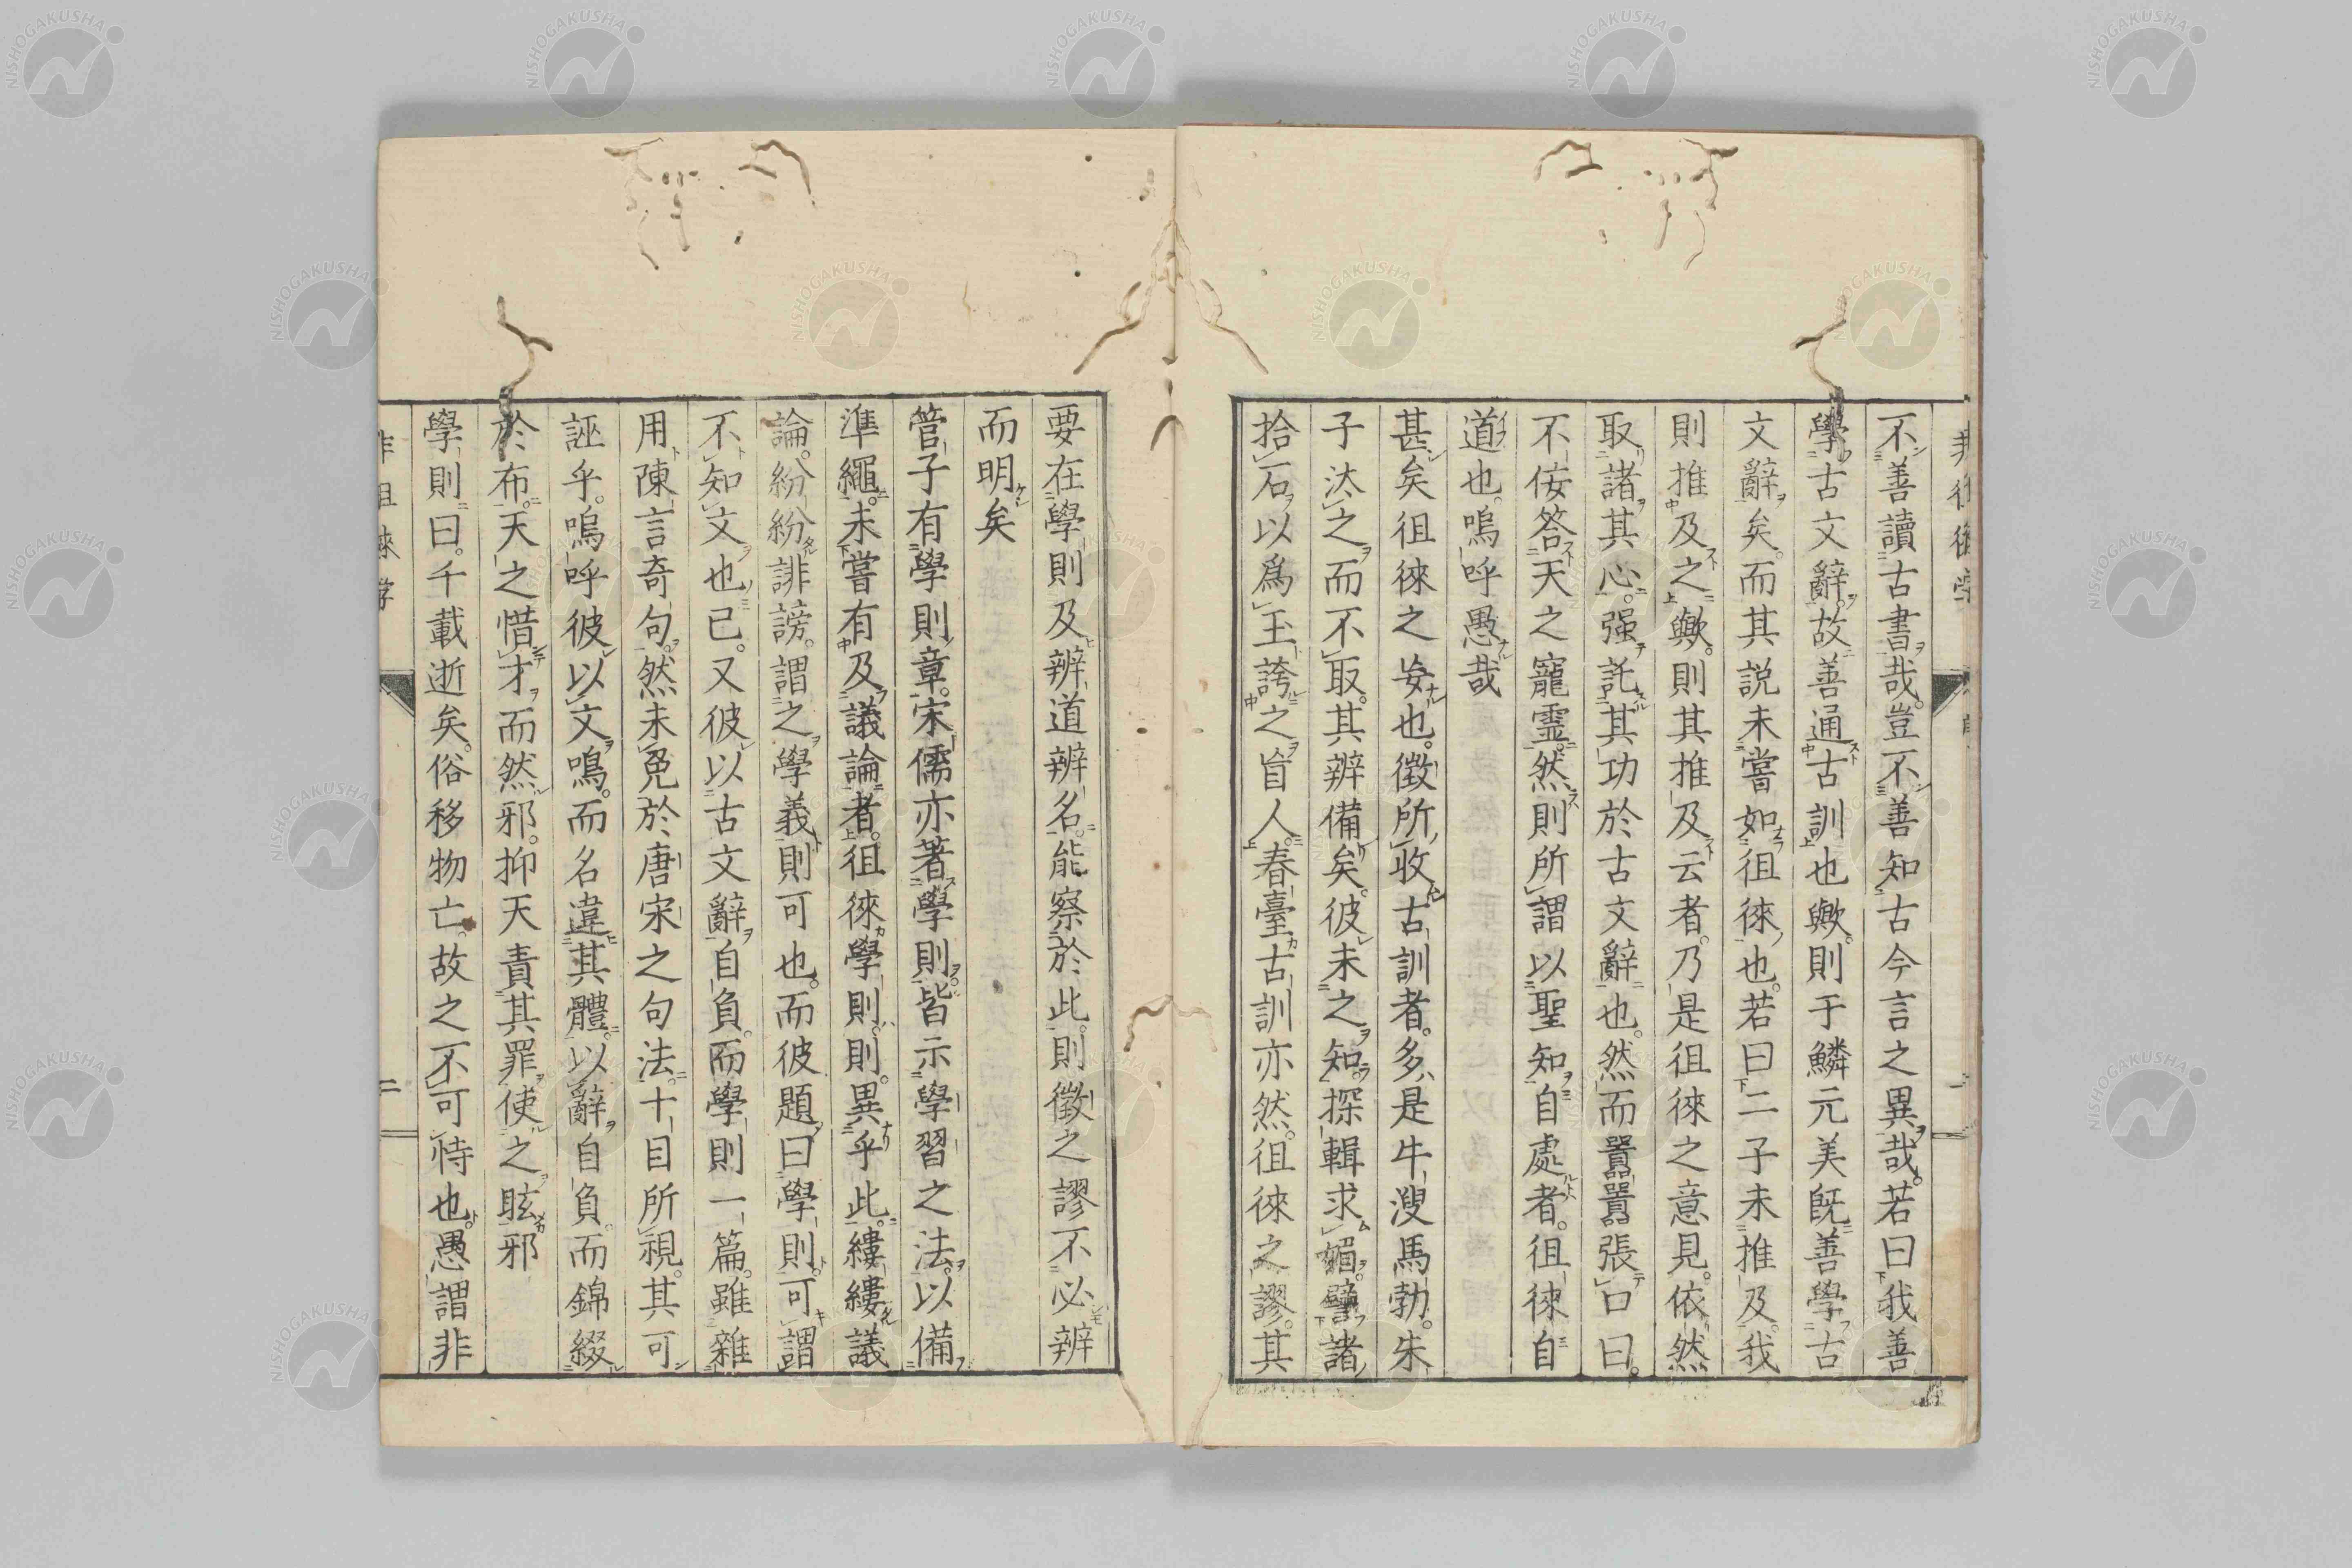 不善讀古書哉。豈不善知古今言之異哉。若曰我善
學古文辭。故善通古訓也歟。則于鱗元美既善學古
文辭矣。而其説未嘗如徂徠也。若曰二子未推及。我
則推及之歟。則其推及云者。乃是徂徠之意見。依然
取諸其心。强託其功於古文辭也。然而囂囂張口曰。
不佞答天之寵靈。然則所謂以聖知自處者。徂徠自
道也。嗚呼愚哉
甚矣徂徠之妄也。徴所收古訓者。多是牛溲馬勃。朱
子汰之而不取。其辨備矣。彼未之知。探輯求媚。譬諸
拾石以爲玉誇之盲人。春臺古訓亦然。徂徠之謬。其
要在學則及辨道辨名。能察於此。則徴之謬不必辨
而明矣
管子有學則章。宋儒亦著學則。皆示學習之法。以備
準繩。未嘗有及議論者。徂徠學則。則異乎此。縷縷議
論。紛紛誹謗。謂之學義則可也。而彼題曰學則。可謂
不知文也已。又彼以古文辭自負。而學則一篇。雖雜
用陳言奇句。然未免於唐宋之句法。十目所視。其可
誣乎。嗚呼彼以文鳴。而名違其體。以辭自負。而錦綴
於布。天之惜才而然邪。抑天責其罪。使之眩邪
學則曰。千載逝矣。俗移物亡。故之不可恃也。愚謂非
二
NISHOGAKUSHA